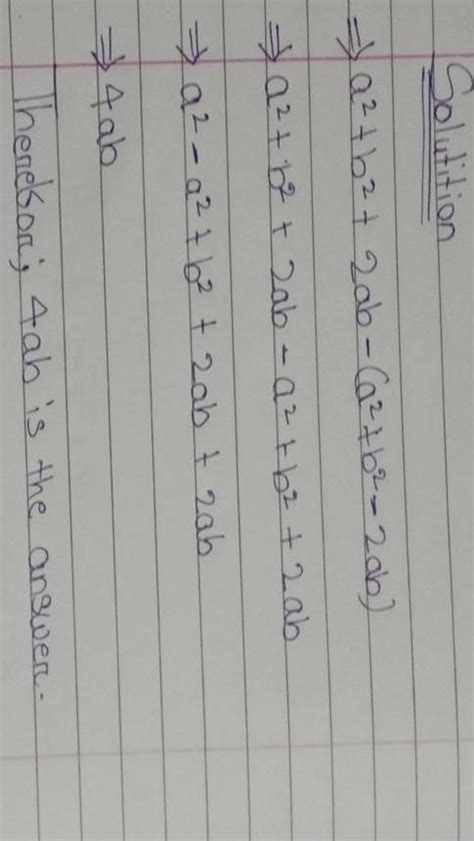 Solutition
⇒ a² + b² + 2ab - (a² + b² - 2ab)
⇒ a² + b² + 2ab - a² + b² + 2ab
⇒ a² - a² + b² + 2ab + 2ab
⇒ 4ab
Therefor; 4ab is the answer.